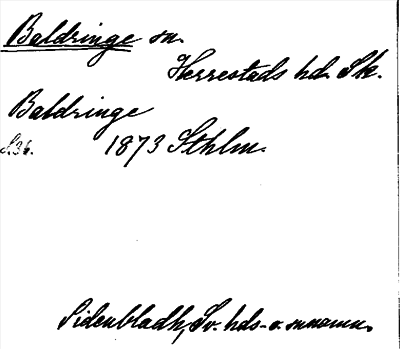 Baldringe sn.
Herrestads hd. Sk.
Baldringe
S.36. 1873 Sthlm.
Sidenbladh, Sv. hds- o. snnamn.